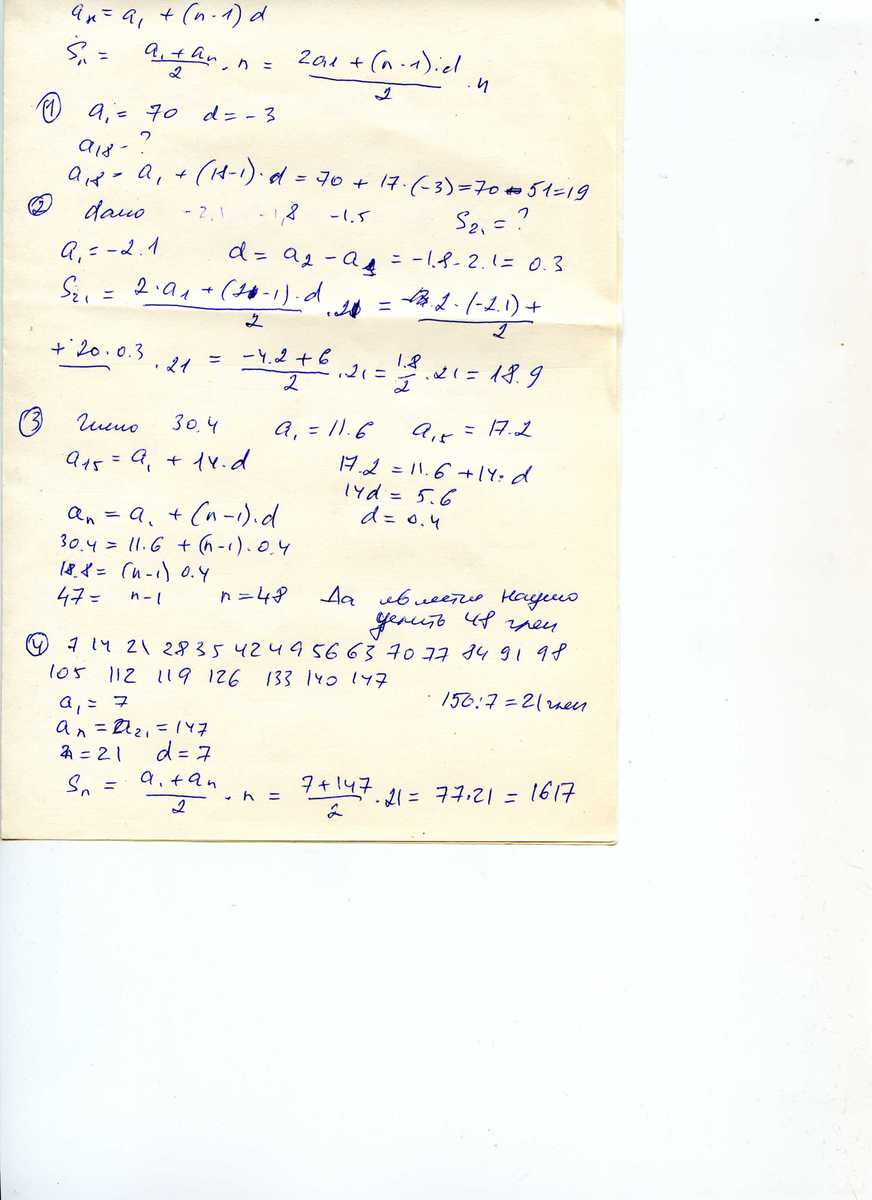 aₙ = a₁ + (n-1) d
Sₙ = (a₁ + aₙ)/2 · n = (2a1 + (n-1)·d)/2 · n
① a₁ = 70 d = -3
a₁₈ - ?
a₁₈ = a₁ + (18-1)·d = 70 + 17·(-3) = 70 - 51 = 19
② дано -2.1 -1,8 -1.5 S₂₁ = ?
a₁ = -2.1 d = a₂ - a₁ = -1.8-2.1 = 0.3
S₂₁ = (2·a₁ + (21-1)·d)/2 · 21 = (2·(-2.1) +)/2
+ 20·0.3 · 21 = (-4.2 + 6)/2 · 21 = 1.8/2 · 21 = 18.9
③ Число 30.4 a₁ = 11.6 a₁₅ = 17.2
a₁₅ = a₁ + 14·d 17.2 = 11.6 + 14·d
14d = 5.6
aₙ = a₁ + (n-1)·d d = 0.4
30.4 = 11.6 + (n-1)·0.4
18.8 = (n-1) 0.4
47 = n-1 n = 48 Да является
48 член
④ 7 14 21 28 35 42 49 56 63 70 77 84 91 98
105 112 119 126 133 140 147
a₁ = 7 150:7 = 21 член
aₙ = a₂₁ = 147
n = 21 d = 7
Sₙ = (a₁ + aₙ)/2 · n = (7 + 147)/2 · 21 = 77·21 = 1617